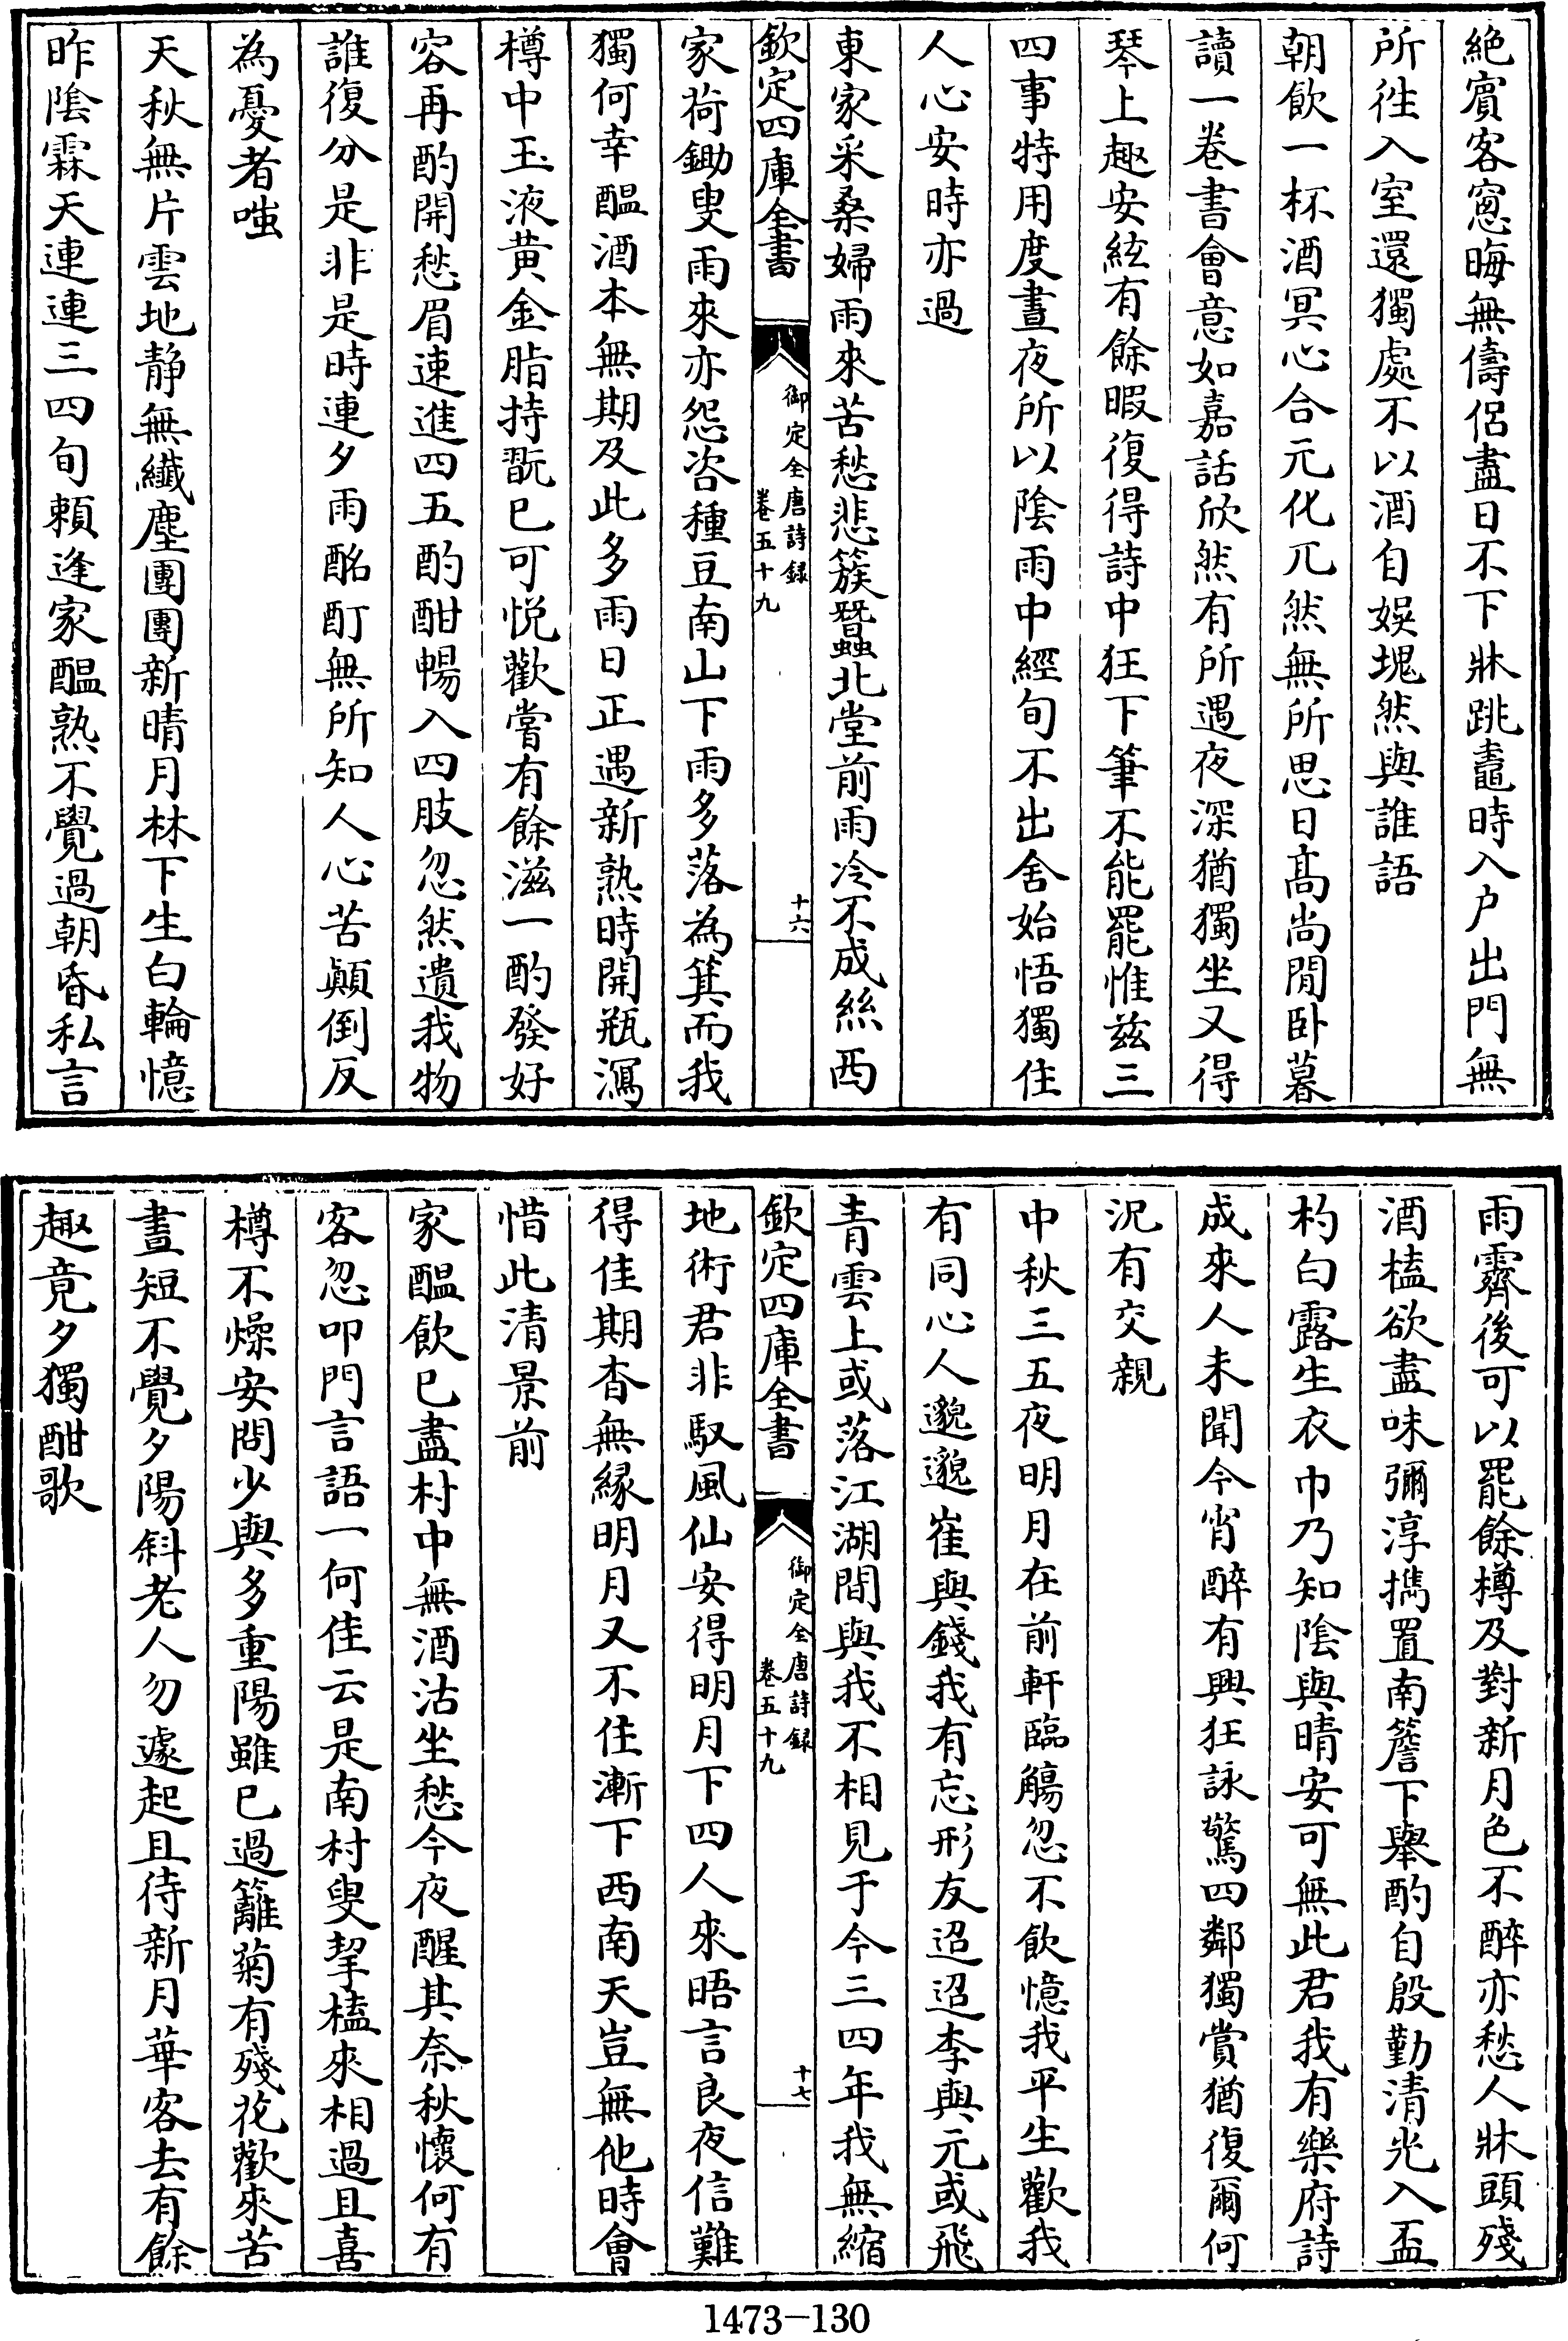 絶賓客窻晦無儔侶盡日不下牀跳鼃時入户出門無
所徃入室還獨處不以酒自娱塊然與誰語
朝飲一杯酒冥心合元化兀然無所思日髙尚閒卧暮
讀一卷書會意如嘉話欣然有所遇夜深猶獨坐又得
琴上趣安絃有餘暇復得詩中狂下筆不能罷惟兹三
四事特用度晝夜所以陰雨中經旬不出舍始悟獨住
人心安時亦過
東家采桑婦雨來苦愁悲簇蠶北堂前雨冷不成絲西
欽定四庫全書
御定全唐詩録
卷五十九
十六
家荷鋤叟雨來亦怨咨種豆南山下雨多落為萁而我
獨何幸醖酒本無期及此多雨日正遇新熟時開瓶瀉
樽中玉液黄金脂持翫已可悦歡嘗有餘滋一酌發好
容再酌開愁眉連進四五酌酣暢入四肢忽然遺我物
誰復分是非是時連夕雨酩酊無所知人心苦顛倒反
為憂者嗤
天秋無片雲地静無纖塵團團新晴月林下生白輪憶
昨陰霖天連連三四旬賴逢家醖熟不覺過朝昏私言
雨霽後可以罷餘樽及對新月色不醉亦愁人牀頭殘
酒榼欲盡味彌淳擕置南簷下舉酌自殷勤清光入盃
杓白露生衣巾乃知陰與晴安可無此君我有樂府詩
成來人未聞今宵醉有興狂詠驚四鄰獨賞猶復爾何
況有交親
中秋三五夜明月在前軒臨觴忽不飲憶我平生歡我
有同心人邈邈崔與錢我有忘形友迢迢李與元或飛
青雲上或落江湖間與我不相見于今三四年我無縮
欽定四庫全書
御定全唐詩録
卷五十九
十七
地術君非馭風仙安得明月下四人來晤言良夜信難
得佳期杳無緣明月又不住漸下西南天豈無他時會
惜此清景前
家醖飲已盡村中無酒沽坐愁今夜醒其奈秋懷何有
客忽叩門言語一何佳云是南村叟挈榼來相過且喜
樽不燥安問少與多重陽雖已過籬菊有殘花歡來苦
晝短不覺夕陽斜老人勿遽起且待新月華客去有餘
趣竟夕獨酣歌
1473-130